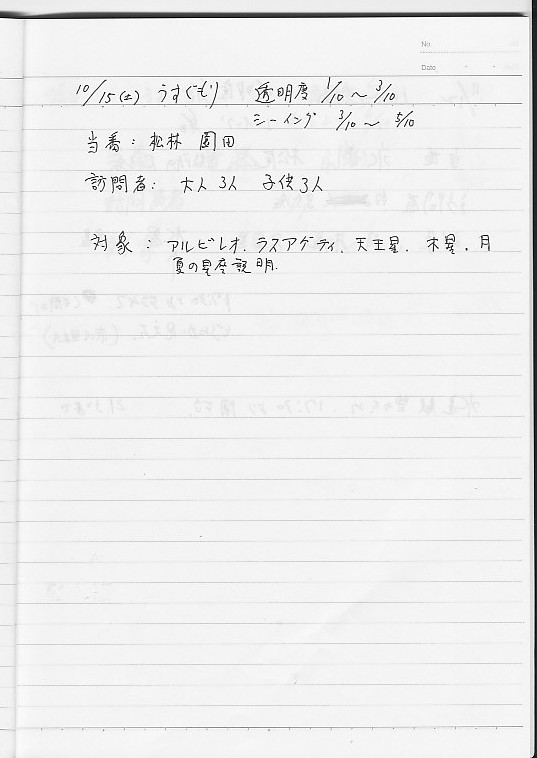 No
Date
10/15(土) うすぐもり 透明度 1/10〜3/10
シーイング 3/10〜5/10
当番: 松林 園田
訪問者: 大人3人 子供3人
対象: アルビレオ、ラスアゲティ、天王星、木星、月
夏の星座説明.